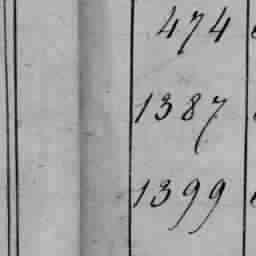 474
1387
1399